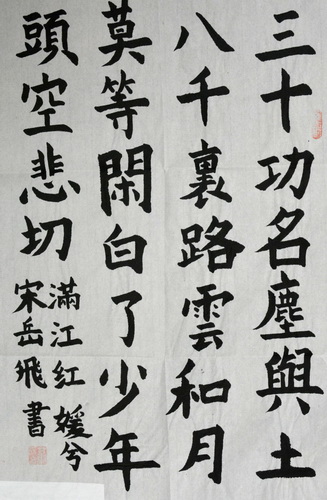 三十功名塵與土
八千裏路雲和月
莫等閑白了少年
頭空悲切
滿江红 媛兮
宋岳飛 書